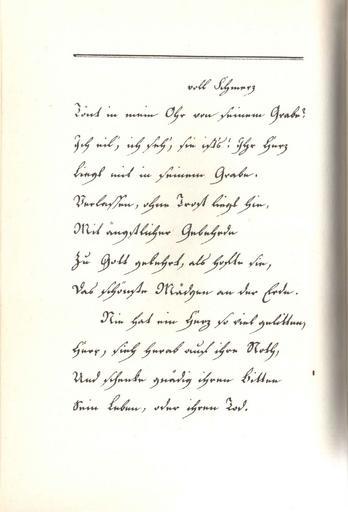 voll Schmerz
Tönt in mein Ohr von seinem Grabe?
Ich eil', ich seh', sie ists! Ihr Herz
Liegt mit in seinem Grabe.
Verlassen, ohne Trost liegt hie,
Mit ängstlicher Gebehrde
Zu Gott gekehrt, als hofte sie,
Das schönste Mädgen an der Erde.
Nie hat ein Herz so viel gelitten,
Herr, sieh herab auf ihre Noth,
Und schenke gnädig ihren Bitten
Sein Leben, oder ihren Tod.